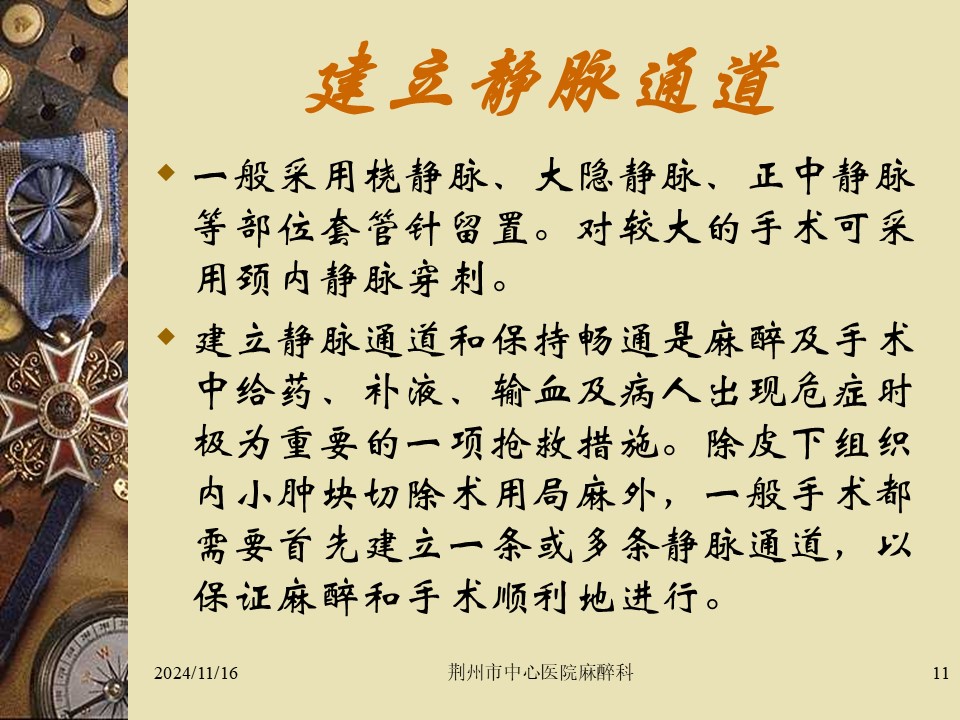 建立静脉通道
一般采用桡静脉、大隐静脉、正中静脉
等部位套管针留置。对较大的手术可采
用颈内静脉穿刺。
建立静脉通道和保持畅通是麻醉及手术
中给药、补液、输血及病人出现危症时
极为重要的一项抢救措施。除皮下组织
内小肿块切除术用局麻外，一般手术都
需要首先建立一条或多条静脉通道，以
保证麻醉和手术顺利地进行。
2024/11/16
荆州市中心医院麻醉科
11